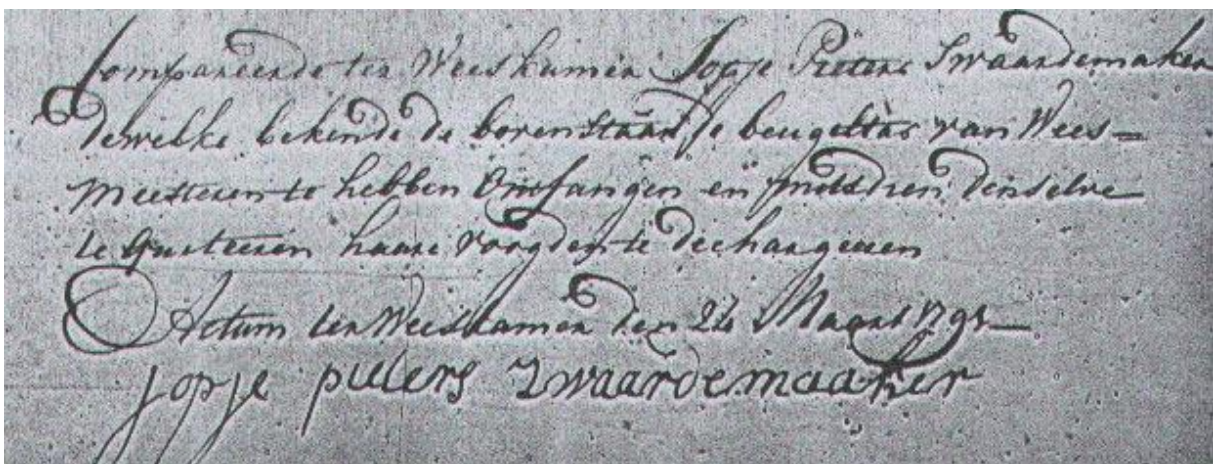 Compareerde ter Weeskamer Jopje Pieters Swaardemaker
dewelke bekende de bovenstaande beugeltas van Wees=
meesteren te hebben Omfangen en mitsdien denselve
te quiteeren haare voogden te dechargeeren
Actum ter Weeskamer den 24 Maart 1795
jopje pieters Zwaardemaaker